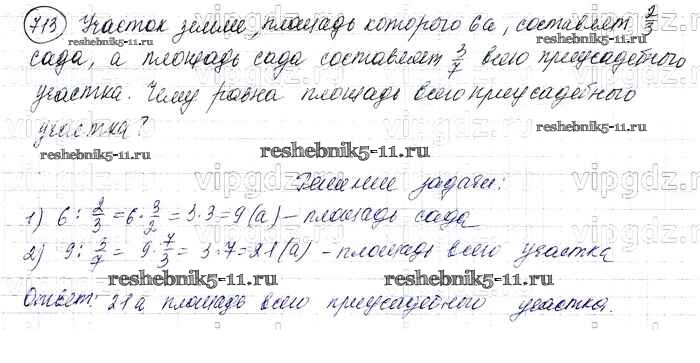 713 Участок земли, площадь которого 6а, составляет 2/3
сада, а площадь сада составляет 3/7 всего приусадебного
участка. Чему равна площадь всего приусадебного
участка?
reshebnik5-11.ru
reshebnik5-11.ru
reshebnik5-11.ru
vipgdz.ru
vipgdz.ru
Решение задачи:
1) 6 : 2/3 = 6 · 3/2 = 3 · 3 = 9 (а) – площадь сада
2) 9 : 3/7 = 9 · 7/3 = 3 · 7 = 21 (а) – площадь всего участка
reshebnik5-11.ru
reshebnik5-11.ru
Ответ: 21а площадь всего приусадебного участка.